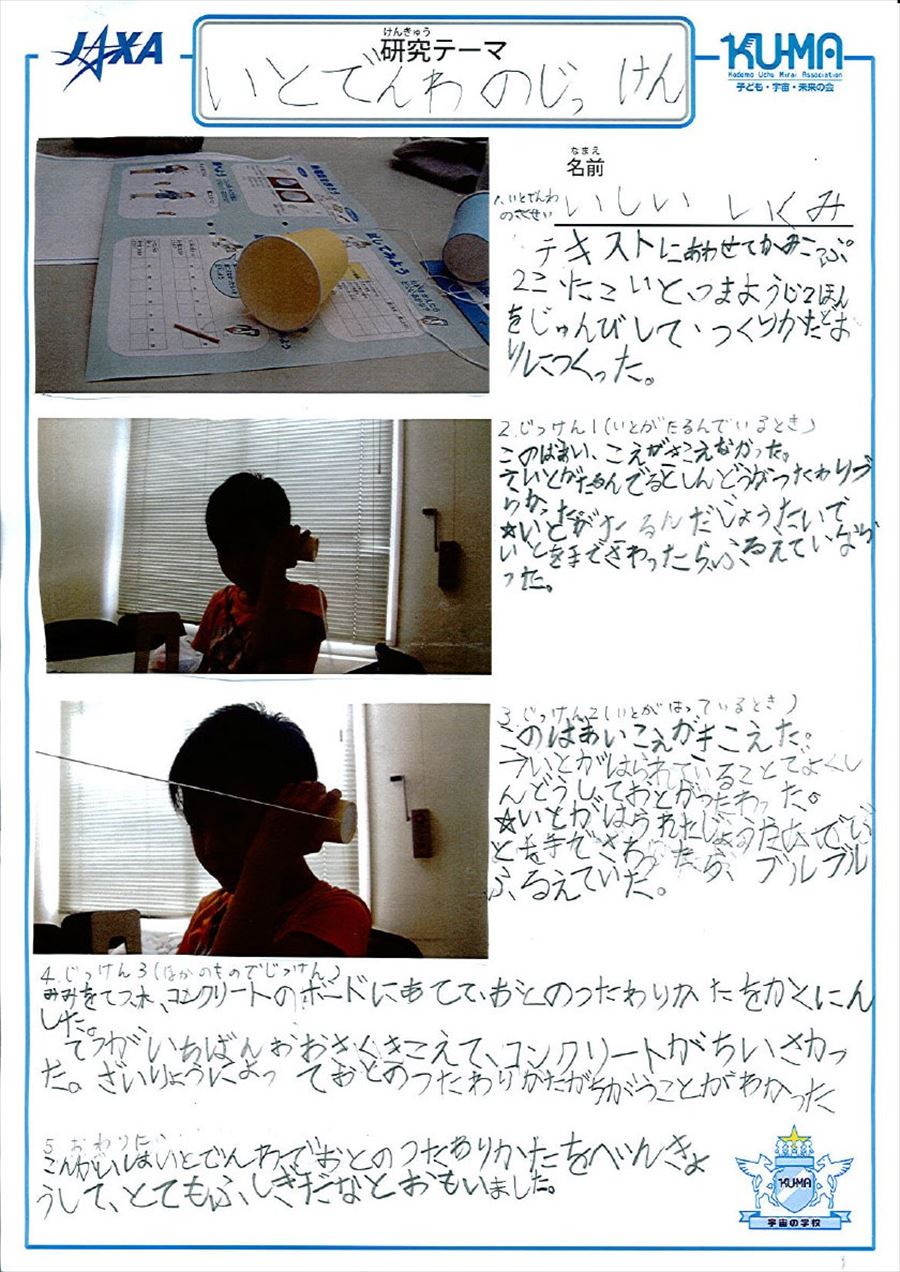 JAXA
けんきゅう
研究テーマ
いとでんわのじっけん
KU-MA
Kodomo Uchu Mirai Association
子ども・宇宙・未来の会
なまえ
名前
いしい いくみ
1.いとでんわ
のさくせい
テキストにあわせてかみこっぷ
2こ、たこいと、つまようじ2ほん
をじゅんびして、つくりかたどお
りにつくった。
試してみよう
2.じっけん1(いとがたるんでいるとき)
このばあい、こえがきこえなかった。
→いとがたるんでるとしんどうがつたわりづ
らかった。
☆いとがたるんだじょうたいで
いとを手でさわったら、ふるえていなか
った。
3.じっけん2(いとがはっているとき)
このばあいこえがきこえた。
→いとがはられていることでよくし
んどうしておとがつたわった。
☆いとがはられたじょうたいでい
とを手でさわったら、ブルブル
ふるえていた。
4.じっけん3(ほかのものでじっけん)
みみをてつ、木、コンクリートのボードにあてて、おとのつたわりかたをかくにん
した。
てつがいちばんおおきくきこえて、コンクリートがちいさかっ
た。ざいりょうによっておとのつたわりかたがちがうことがわかった
5.おわりに
こんかいはいとでんわでおとのつたわりかたをべんきょ
うして、とてもふしぎだなとおもいました。
KU-MA
宇宙の学校